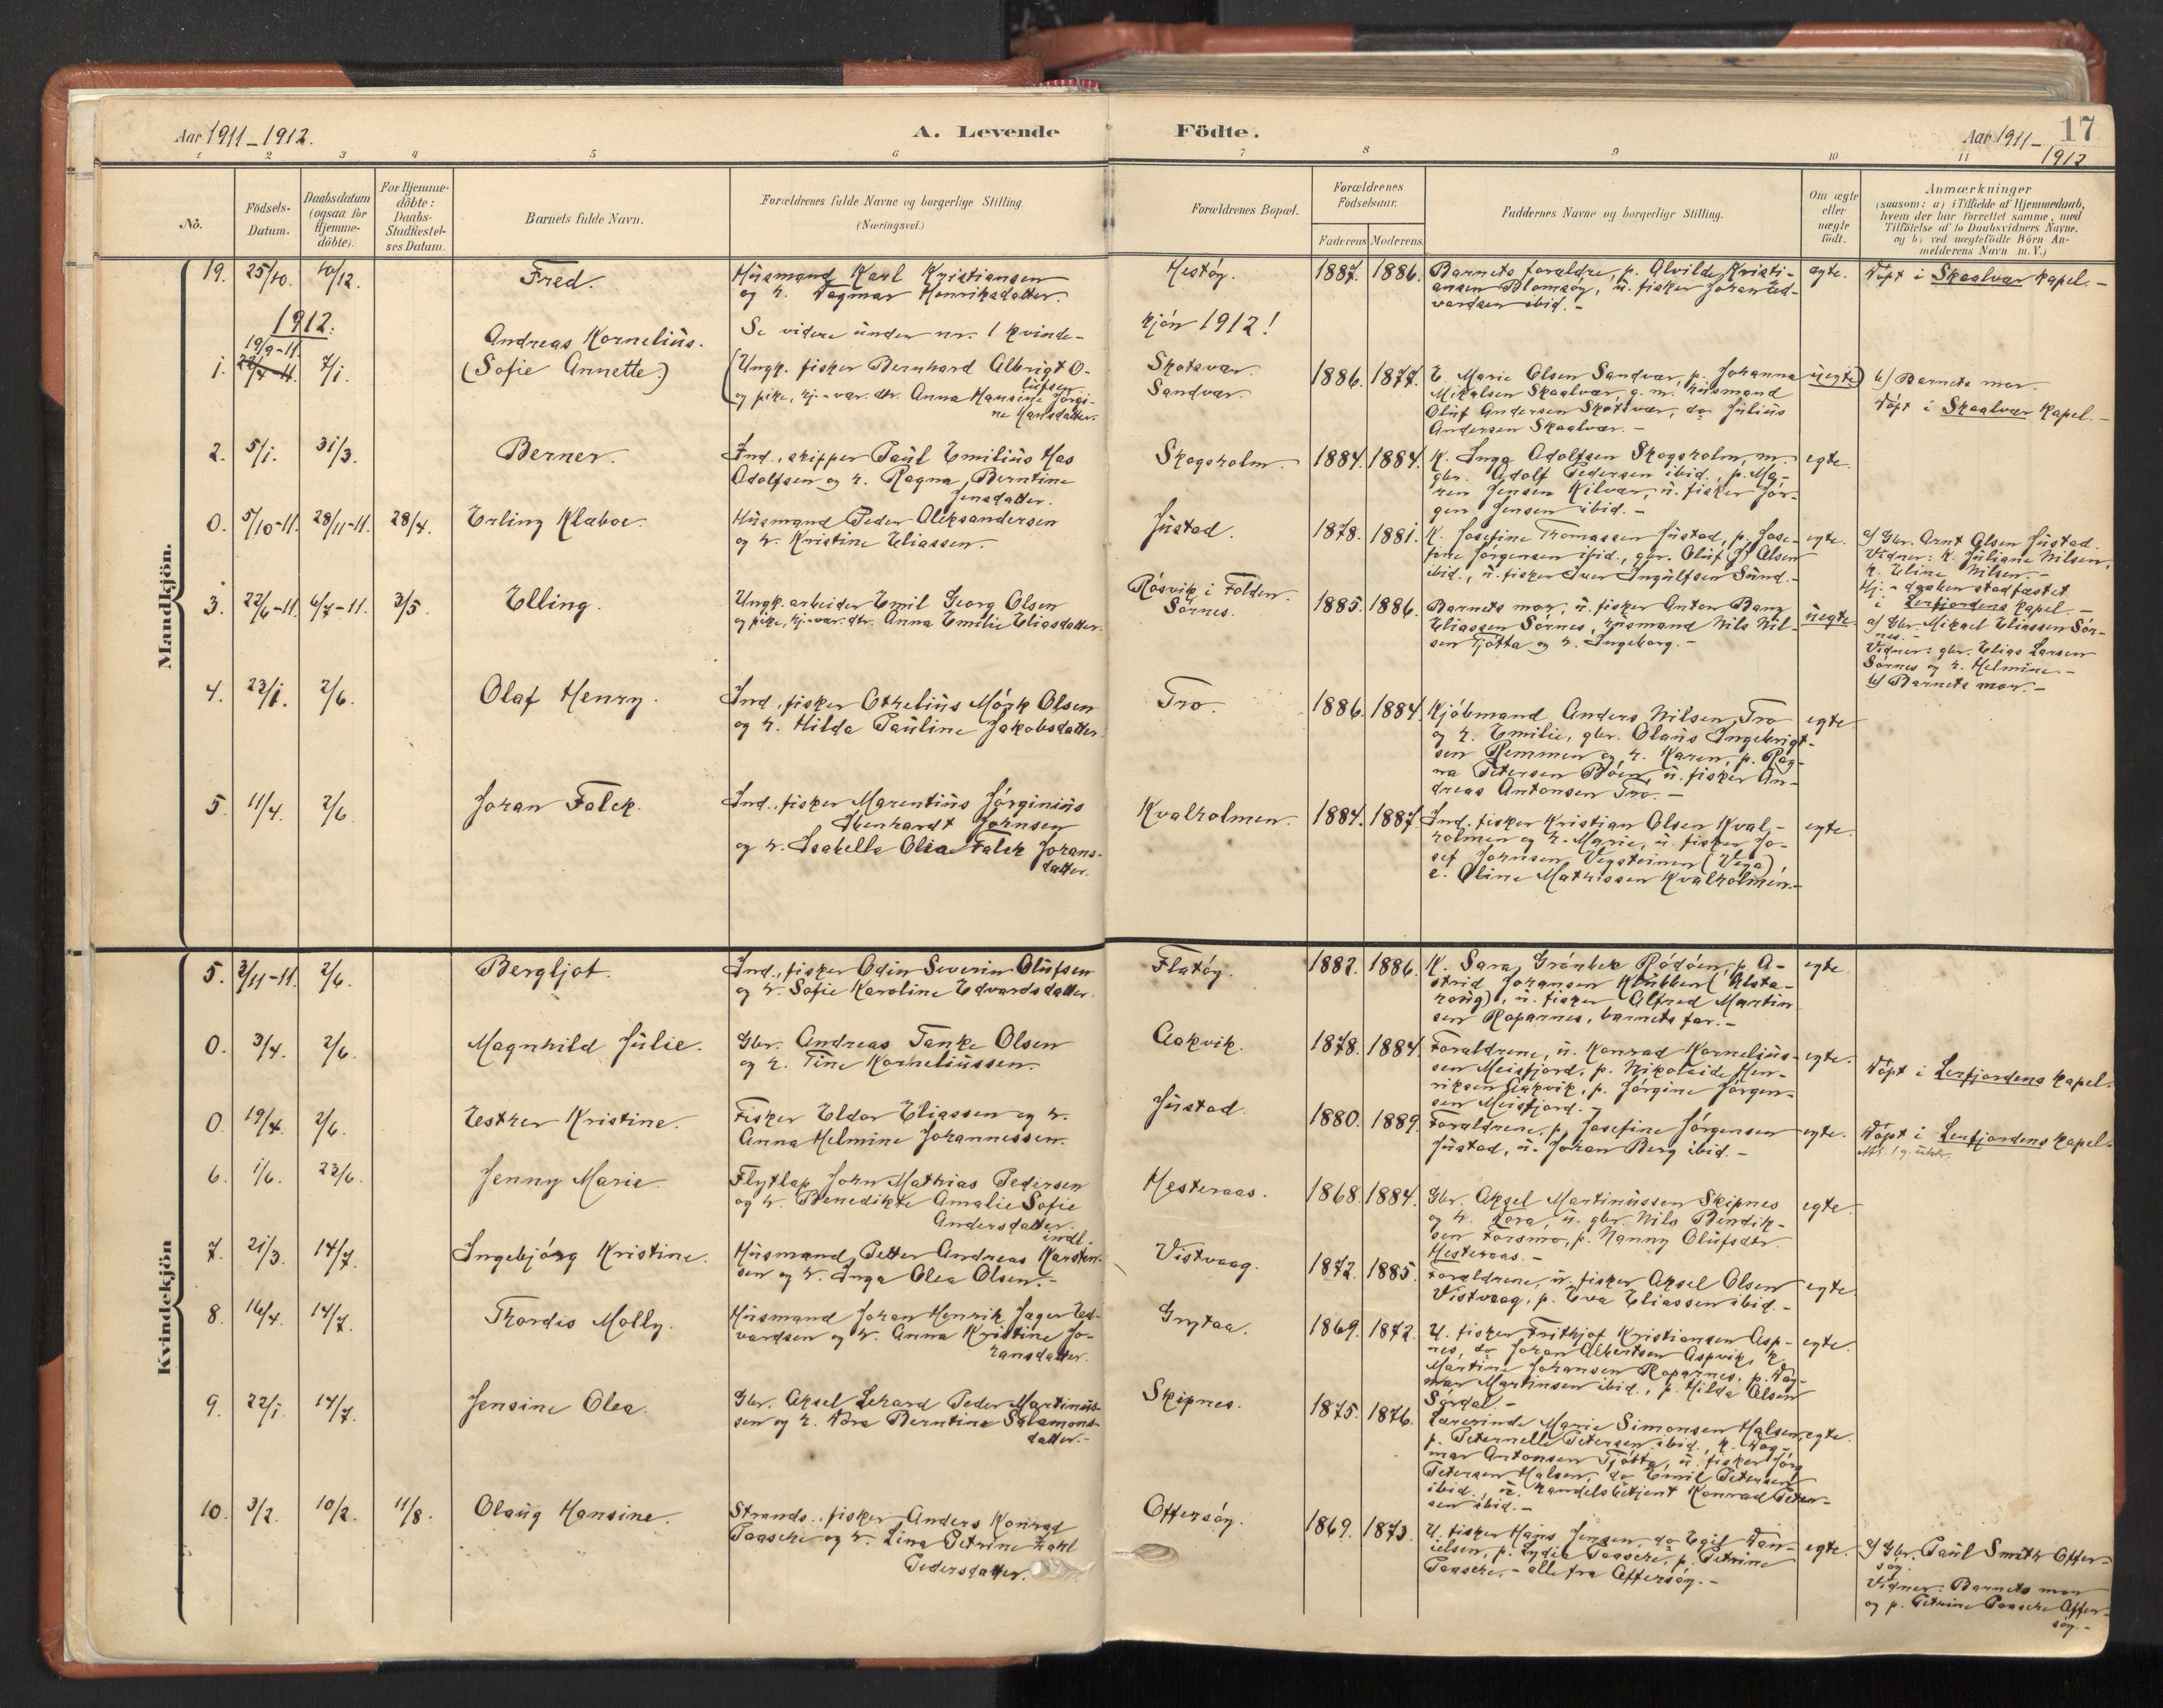 Aar 1911-1912.
A. Levende
Födte.
Aar 1911-
1912
17
1 2 3 4 5 6 7 8 9 10 11
No.
Födsels-
Datum.
Daabsdatum
(ogsaa for
Hjemme-
döbte).
For Hjemme-
döbte:
Daabs-
Stadfæstel-
ses Datum.
Barnets fulde Navn.
Forældrenes fulde Navne og borgerlige Stilling
(Næringsvei.)
Forældrenes Bopæl.
Forældrenes
Födselsaar.
Faderens Moderens
Faddernes Navne og borgerlige Stilling.
Om ægte
eller
uægte
födt.
Anmærkninger
(saasom: a) i Tilfælde af Hjemmedaab,
hvem der har forrettet samme, med
Tilföielse af to Daabsvidners Navne.
og b) ved uægtefödte Börn An-
melderens Navn m. V.)
Mandkjön.
19. 25/10. 10/12.
Fred.
Husmand Karl Kristiansen
og h. Dagmar Henriksdatter.
Hestöy.
1887. 1886.
Barnets foraldre, p. Alvilde Kristi-
ansen Blomsöy, u. fisker Johan Ed-
vardsen ibid.-
egte.
Döpt i Skaalvær kapel.-
1912.
1. 19/9-11. 7/1.
Andreas Kornelius.
(Sofie Annette)
Se videre under nr. 1 kvinde-
kjön 1912!
(Ungk. fisker Bernhard Albrigt O-
lufsen
og pike, hj.-vær. dtr. Anna Hansine Jörgi-
ne Hansdatter.
Skotsvær.
Sandvær.
1886. 1877.
E. Marie Olsen Sandvær, p. Johanna
Mikalsen Skaalvær, g. m. husmand
Oluf Andersen Skotsvær, do Julius
Andersen Skaalvær.-
uegte)
b) Barnets mor.
Döpt i Skaalvær kapel.-
2. 5/1. 31/3.
Berner.
Ind., skipper Paul Emilius Has
Adolfsen og h. Ragna Berntine
Jensdatter.
Skogsholm.
1884. 1884.
K. Inga Adolfsen Skogsholm, m.
gbr. Adolf Pedersen ibid., p. Ma-
ren Jensen Kilvær, u. fisker Jör-
gen Jensen ibid.-
egte.
0. 5/10-11. 28/11-11. 28/4.
Erling Klæboe.
Husmand Peder Aleksandersen
og h. Kristine Eliassen.
Justad.
1878. 1881.
K. Josefine Thomassen Justad, p. Jose-
fine Jörgensen ibid., gbr. Oluf Olsen
ibid., u. fisker Iver Ingulfsen Sund.-
egte.
a) Gbr. Arnt Olsen Justad.
Vidner: K. Juliane Nilsen,
k. Eline Nilsen.-
Hj.-daaben stadfæstet
i Leirfjordens kapel.-
3. 22/6-11. 6/7-11. 3/5.
Elling.
Ungk. arbeider Emil Georg Olsen
og pike, hj.-vær. dtr. Anna Emilie Eliasdatter.
Rösvik i Folden.
Sörnes.
1885. 1886.
Barnets mor, u. fisker Anton Bang
Eliassen Sörnes, husmand Nils Nil-
sen Tjötta og h. Ingeborg.-
uegte.
a) Gbr. Mikael Eliassen Sör-
nes.-
Vidner: gbr. Elias Larsen
Sörnes og h. Helmine.-
b) Barnets mor.-
4. 23/1. 2/6.
Olaf Henry.
Ind., fisker Othelius Mörk Olsen
og h. Hilda Pauline Jakobsdatter.
Tro.
1886. 1884.
Kjöbmand Anders Nilsen Tro
og h. Emilie, gbr. Olaus Ingebrigt-
sen Remmen og h. Karen, p. Rag-
na Petersen Böen, u. fisker An-
dreas Antonsen Tro.-
egte.
5. 11/4. 2/6.
Johan Falck.
Ind., fisker Marentius Jörginius
Ibenhardt Johnsen
og h. Isabella Olea Falck Johans-
datter.
Kvalholmen.
1884. 1887.
Ind. fisker Kristian Olsen Kval-
holmen og h. Marie, u. fisker Jo-
sef Johnsen Vegsteinen (Vega),
e. Oline Mathissen Kvalholmen.-
egte.
Kvindekjön
5. 3/11-11. 2/6.
Bergljot.
Ind., fisker Odin Severin Olufsen
og h. Sofie Karoline Edvardsdatter.
Flatöy.
1882. 1886.
K. Sara Grönbek Rödöen, p. A-
strid Johansen Klubben (Alsta-
haug), u. fisker Alfred Martin
sen Roparnes, barnets far.-
egte.
0. 3/4. 2/6.
Magnhild Julie.
Gbr. Andreas Tanke Olsen
og h. Tine Korneliussen.
Aakvik.
1878. 1884.
Foraldrene, u. Konrad Kornelius-
sen Meisfjord, p. Nikolaide Hen-
riksen Aakvik, p. Jörgine Jörgen-
sen Meisfjord.-
egte.
Döpt i Leirfjordens kapel.
0. 19/4. 2/6.
Esther Kristine.
Fisker Eldor Eliassen og h.
Anna Helmine Johannessen.
Justad.
1880. 1889.
Foraldrene, p. Josefine Jörgensen
Justad, u. Johan Berg ibid.-
egte.
Döpt i Leirfjordens kapel.
6. 1/6. 23/6.
Jenny Marie.
Flytlap John Mathias Pedersen
og h. Benedikte Amalie Sofie
Andersdatter.
Hesteraas.
1868. 1884.
Gbr. Aksel Martinussen Skipnes
og h. Dora, u. gbr. Nils Bendik-
sen Forsmo, p. Nanny Olufsdtr
Hesteraas.-
egte.
7. 21/3. 14/7.
Ingebjörg Kristine.
indl.
Husmand Petter Andreas Karsten-
sen og h. Inga Olea Olsen.-
Vistvaag.
1872. 1885.
Foraldrene, u. fisker Aksel Olsen
Vistvaag, p. Eva Eliassen ibid.-
egte.
8. 16/4. 14/7.
Thordis Molly.
Husmand Johan Henrik Jager Ed-
vardsen og h. Anna Kristine Jo-
hansdatter.
Grytaa.
1869. 1872.
U. fisker Frithjof Kristiansen Asp-
nes, do Johan Albertsen Aspvik, k.
Martine Johansen Roparnes, p. Dag-
mar Martinsen ibid., p. Hilda Olsen
Sördal.-
egte.
9. 22/1. 14/7.
Jensine Olea.
Gbr. Aksel Lehard Peder Martinus-
sen og h. Dora Berntine Salamons-
datter.-
Skipnes.
1875. 1876.
Lærerinde Marie Simonsen Halsen,
p. Peternelle Petersen ibid., k. Dag-
mar Antonsen Tjötta, u. fisker Jörg
Petersen Halsen, do Emil Petersen
ibid., u. handelsbetjent Konrad Peter-
sen ibid.-
egte.
10. 3/2. 10/2. 11/8.
Olaug Hansine.
Strands., fisker Anders Konrad
Paasche og h. Lina Petrine Zahl
Pedersdatter.
Offersöy.
1869. 1873.
U. fisker Hans Jensen, do Egil Dan-
ielsen, p. Lydia Paasche, p. Petrine
Paasche,- alle fra Offersöy.-
egte.
a) Gbr. Paul Smith Offer-
söy.
Vidner: Barnets mor
og p. Petrine Paasche Offer-
söy.-